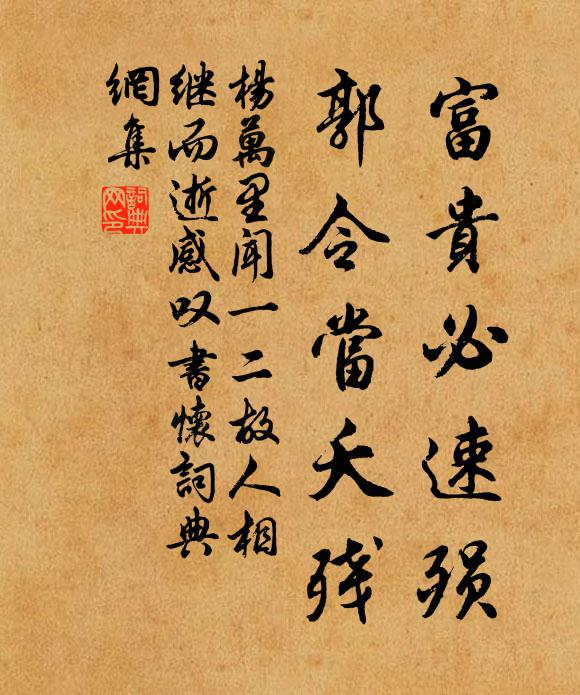 富貴必速殞
郭令當夭残
楊萬里聞一二故人相
继而逝感叹書懷詞典
網集
詞典
网印